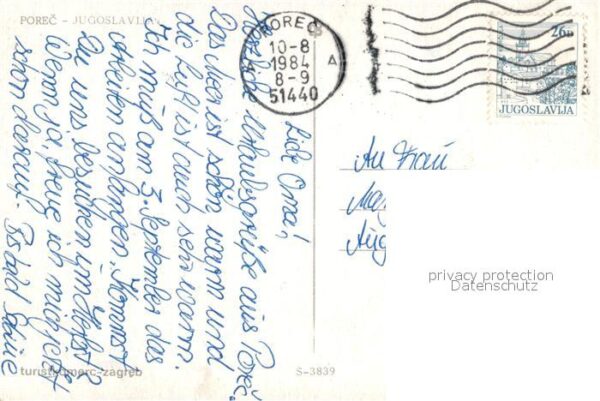 POREČ – JUGOSLAVIJA
Liebe Oma!
Herzliche Urlaubsgrüße aus Poreč.
Das Meer ist schön warm und
die Luft ist auch sehr warm.
Ich muß am 3. September das
Arbeiten anfangen. Kommst
Du uns besuchen im Herbst?
Wenn ja, freue ich mich jetzt
schon darauf. Bis bald Deine
turistkomerc-zagreb
S-3839
POREČ
10-8
1984
8-9
51440
A
26D
JUGOSLAVIJA
An Frau
privacy protection
Datenschutz